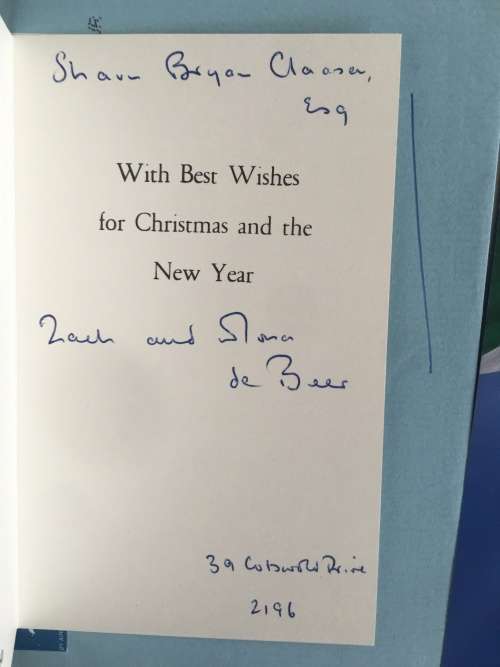 Shaun Bryan Claassen,
Esq
With Best Wishes
for Christmas and the
New Year
Zach and Mona
de Beer
39 Cotswold Drive
2196